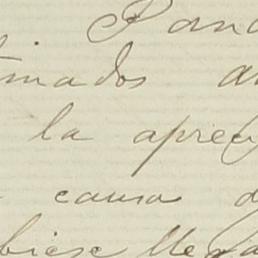 Para
timados a
la aprec
causa d
biese llega